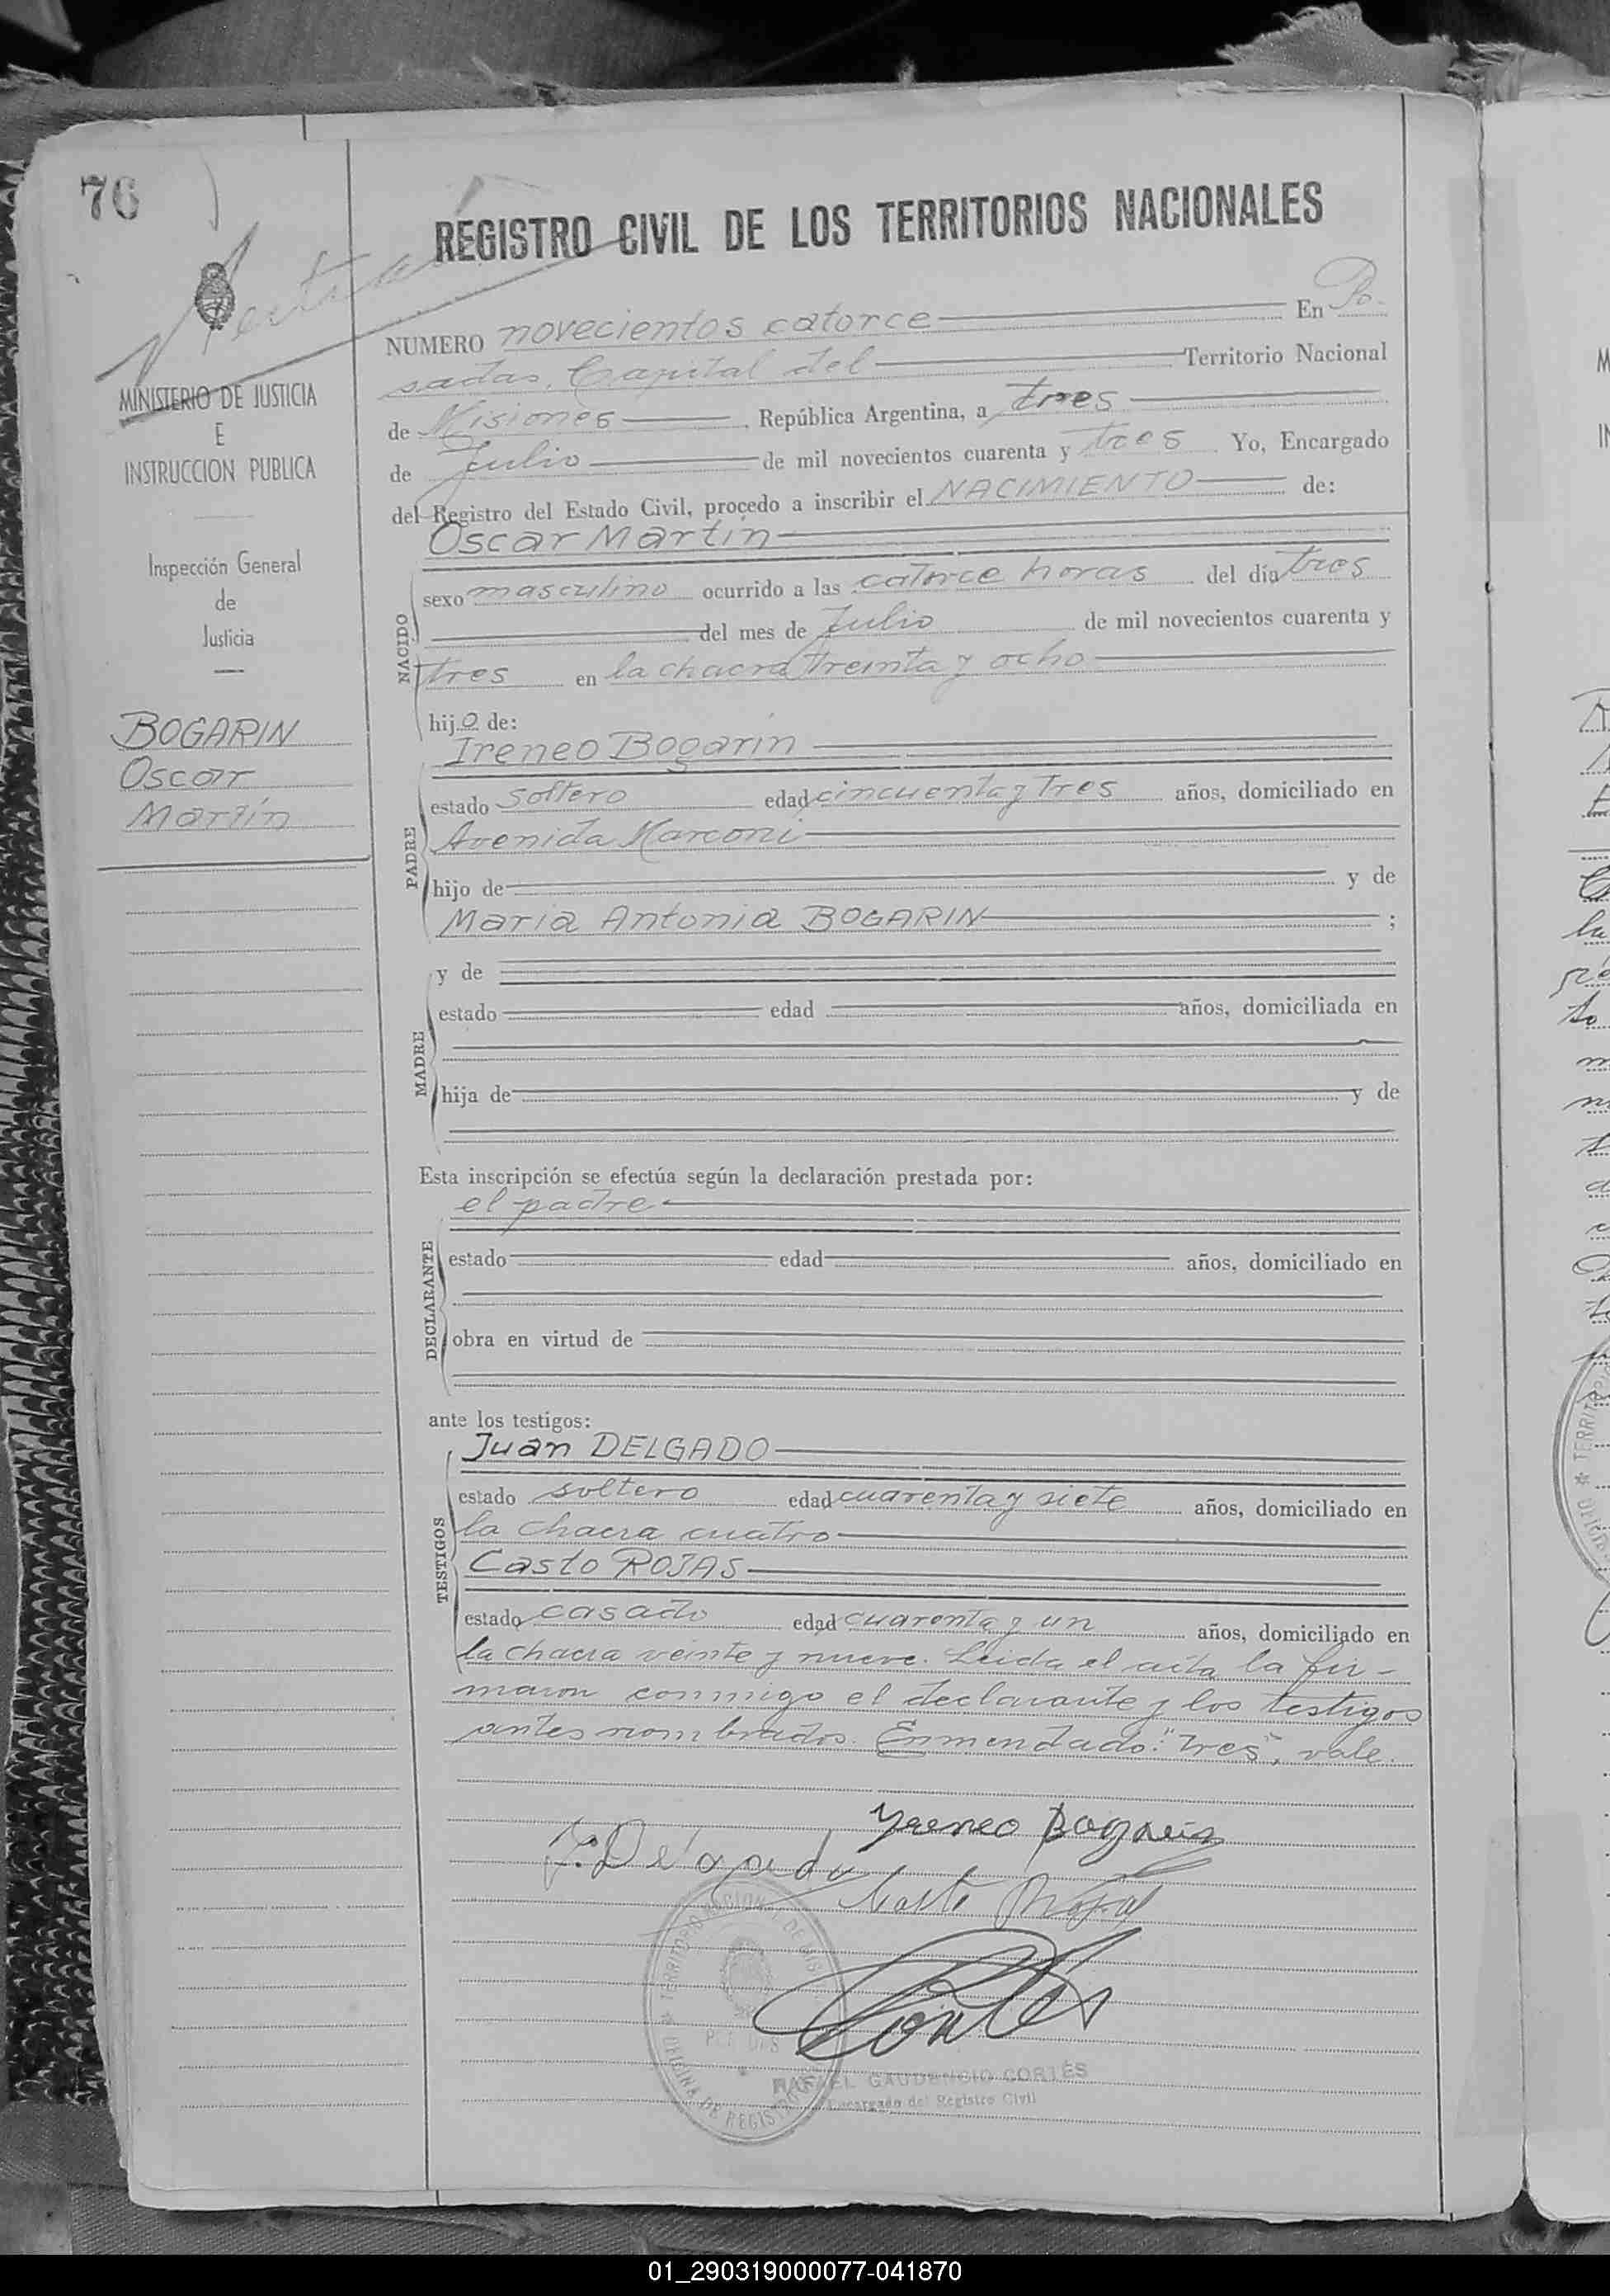 76
REGISTRO CIVIL DE LOS TERRITORIOS NACIONALES
MINISTERIO DE JUSTICIA
E
INSTRUCCION PUBLICA
Inspección General
de
Justicia
BOGARIN
Oscar
Martín
NUMERO novecientos catorce En Po-
sadas, Capital del Territorio Nacional
de Misiones, República Argentina, a tres
de Julio de mil novecientos cuarenta y tres Yo, Encargado
del Registro del Estado Civil, procedo a inscribir el NACIMIENTO de:
Oscar Martín
NACIDO
sexo masculino ocurrido a las catorce horas del día tres
del mes de Julio de mil novecientos cuarenta y
tres en la chacra treinta y ocho
hijo de:
Ireneo Bogarin
PADRE
estado soltero edad cincuenta y tres años, domiciliado en
Avenida Marconi
hijo de y de
Maria Antonia BOGARIN ;
MADRE
y de
estado edad años, domiciliada en
hija de y de
Esta inscripción se efectúa según la declaración prestada por:
el padre
DECLARANTE
estado edad años, domiciliado en
obra en virtud de
ante los testigos:
Juan DELGADO
TESTIGOS
estado soltero edad cuarenta y siete años, domiciliado en
la chacra cuatro
Casto ROJAS
estado casado edad cuarenta y un años, domiciliado en
la chacra veinte y nueve. Leida el acta la fir-
maron conmigo el declarante y los testigos
antes nombrados. Enmendado: "tres", vale.
Yreneo Bogarin
J. Delgado
Casto Rojas
Cortés
TERRITORIO NACIONAL DE MISIONES
OFICINA DE REGISTRO
RAFAEL GAUDENCIO CORTÉS
Encargado del Registro Civil
01_290319000077-041870